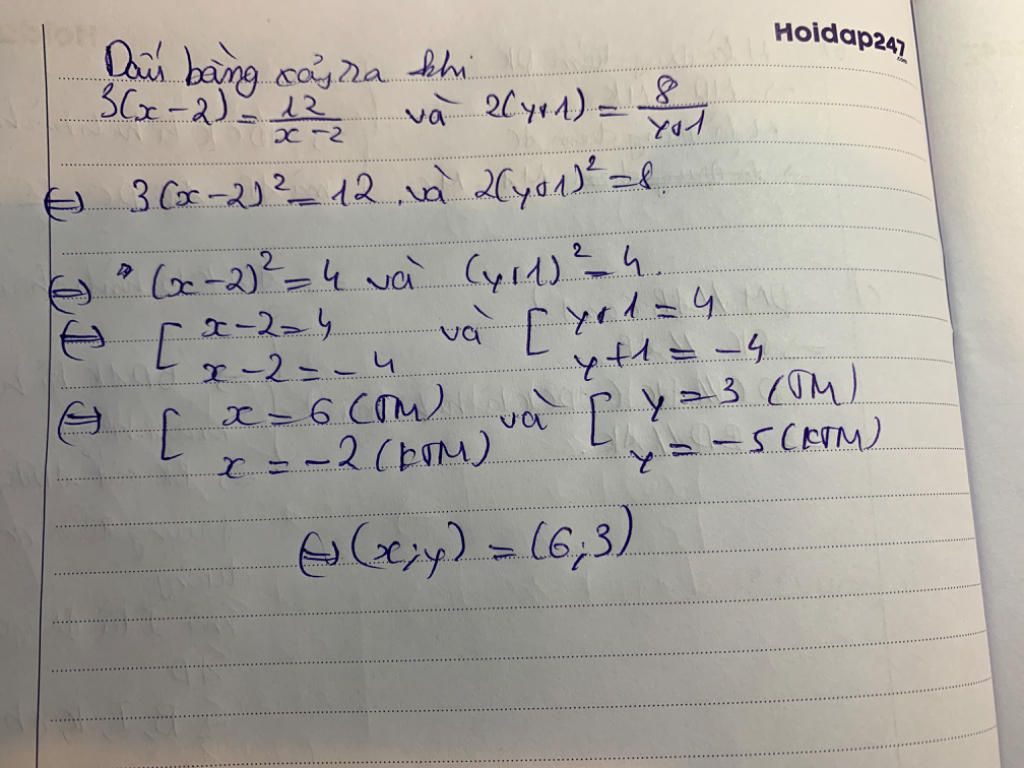 Hoidap247
.com
Dấu bằng xảy ra khi
3(x-2) = 12/(x-2) và 2(y+1) = 8/(y+1)
⇔ 3(x-2)² = 12 và 2(y+1)² = 8.
⇔ (x-2)² = 4 và (y+1)² = 4.
⇔ [ x-2 = 4 và [ y+1 = 4
x-2 = -4 y+1 = -4
⇔ [ x = 6 (TM) và [ y = 3 (TM)
x = -2 (KTM) y = -5 (KTM)
⇔ (x;y) = (6;3)